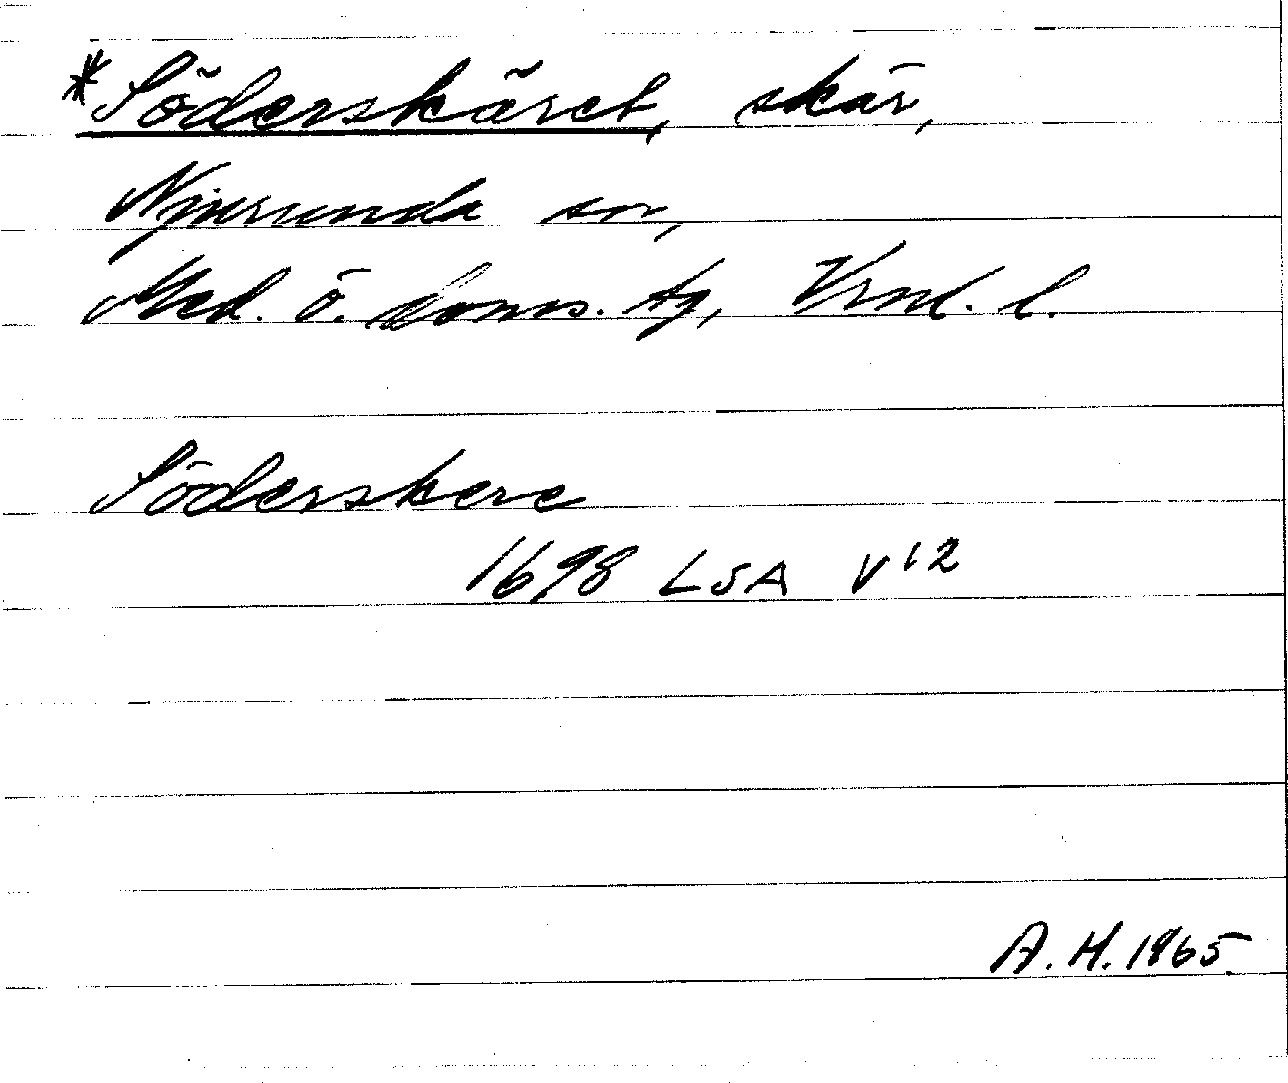 *Söderskäret, skär,
Njurunda sn,
Med. ö. doms. tg, Vrnl. l.
Söderskere
1698 LSA V12
A. H. 1965